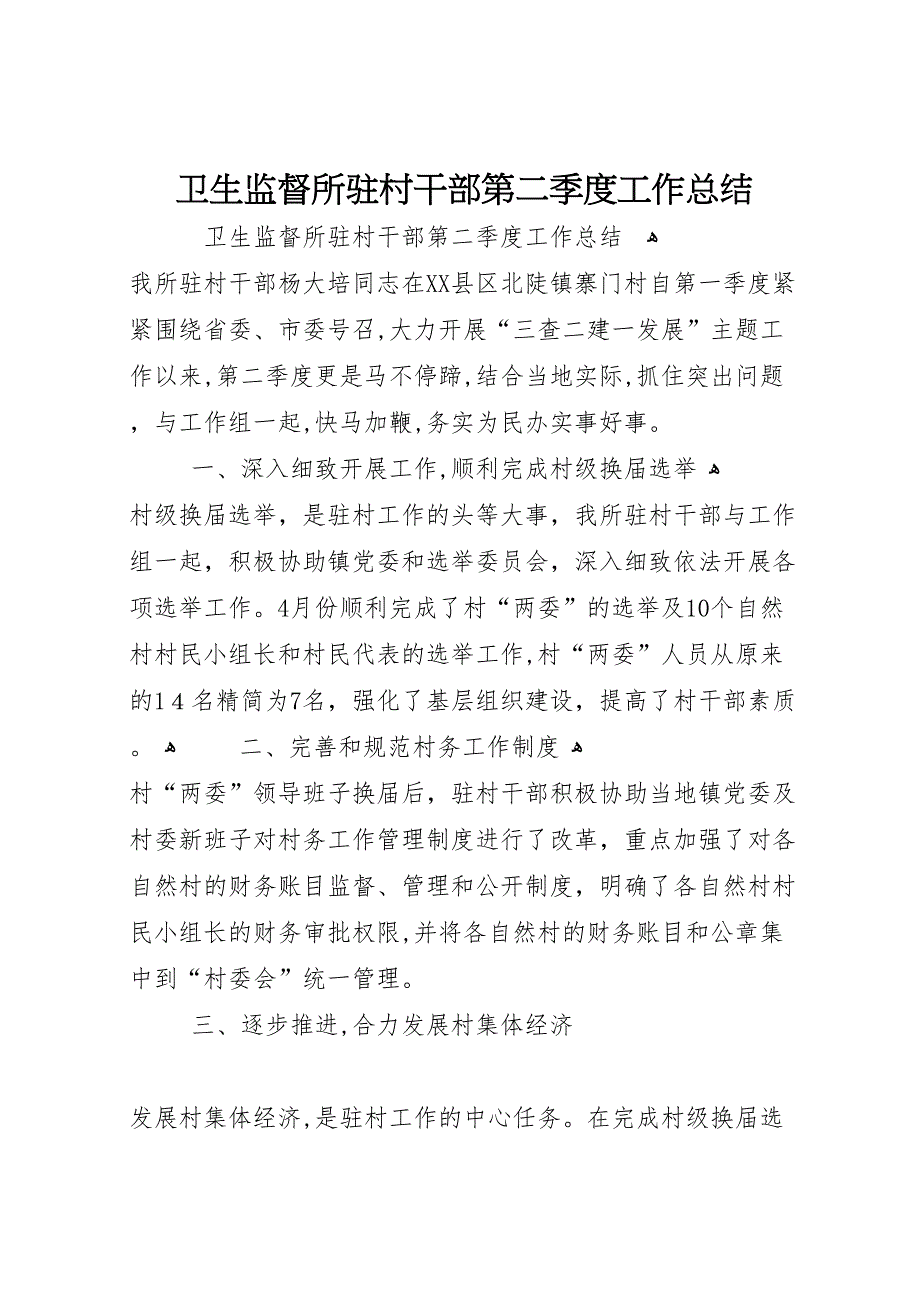 卫生监督所驻村干部第二季度工作总结
卫生监督所驻村干部第二季度工作总结 ﻫ
我所驻村干部杨大培同志在XX县区北陡镇寨门村自第一季度紧
紧围绕省委、市委号召,大力开展“三查二建一发展”主题工
作以来,第二季度更是马不停蹄,结合当地实际,抓住突出问题
，与工作组一起,快马加鞭,务实为民办实事好事。
一、深入细致开展工作,顺利完成村级换届选举 ﻫ
村级换届选举，是驻村工作的头等大事，我所驻村干部与工作
组一起，积极协助镇党委和选举委员会，深入细致依法开展各
项选举工作。4月份顺利完成了村“两委”的选举及10个自然
村村民小组长和村民代表的选举工作,村“两委”人员从原来
的1４名精简为7名，强化了基层组织建设，提高了村干部素质
。 ﻫ 二、完善和规范村务工作制度 ﻫ
村“两委”领导班子换届后，驻村干部积极协助当地镇党委及
村委新班子对村务工作管理制度进行了改革，重点加强了对各
自然村的财务账目监督、管理和公开制度，明确了各自然村村
民小组长的财务审批权限,并将各自然村的财务账目和公章集
中到“村委会”统一管理。
三、逐步推进,合力发展村集体经济
发展村集体经济,是驻村工作的中心任务。在完成村级换届选